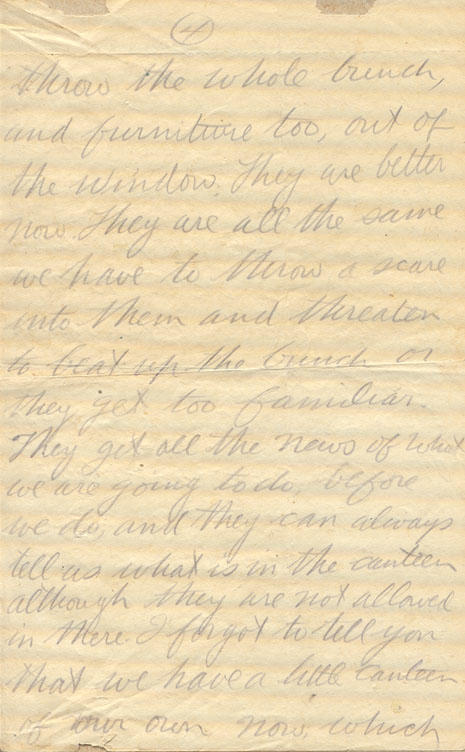 4
throw the whole bunch,
and furniture too, out of
the window. They are better
now. They are all the same
we have to throw a scare
into them and threaten
to beat up the bunch or
they get too familiar.
They get all the news of what
we are going to do, before
we do, and they can always
tell us what is in the canteen
although they are not allowed
in there. I forgot to tell you
that we have a little canteen
of our own now, which